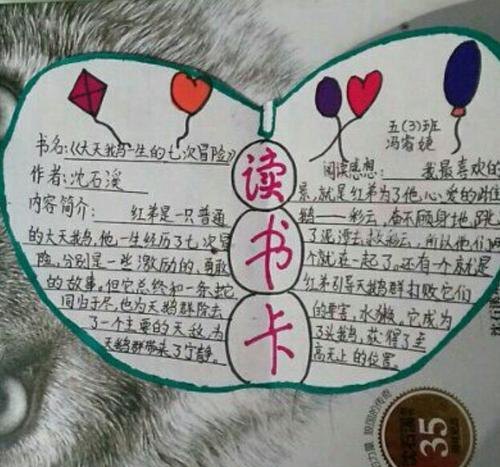 书名:《大天鹅一生的七次冒险》
作者:沈石溪
内容简介: 红弟是一只普通
的大天鹅,他一生经历了七次冒
险,分别是一些激励的,勇敢
的故事,但它总终和一条蛇
同归于尽,也为天鹅群除去
了一个主要的天敌,为
天鹅群带来了宁静。
读
书
卡
五(3)班
冯睿婕
阅读感想: 我最喜欢的
景,就是红弟为了他,心爱的
——彩云,奋不顾身地,跳
了泥潭去救彩云,所以他们
个就在一起了,还有一个就是
红弟引导天鹅群打败它们
的要害,水獭,它成为
了头鹅,获得了至
高无上的位置。
35